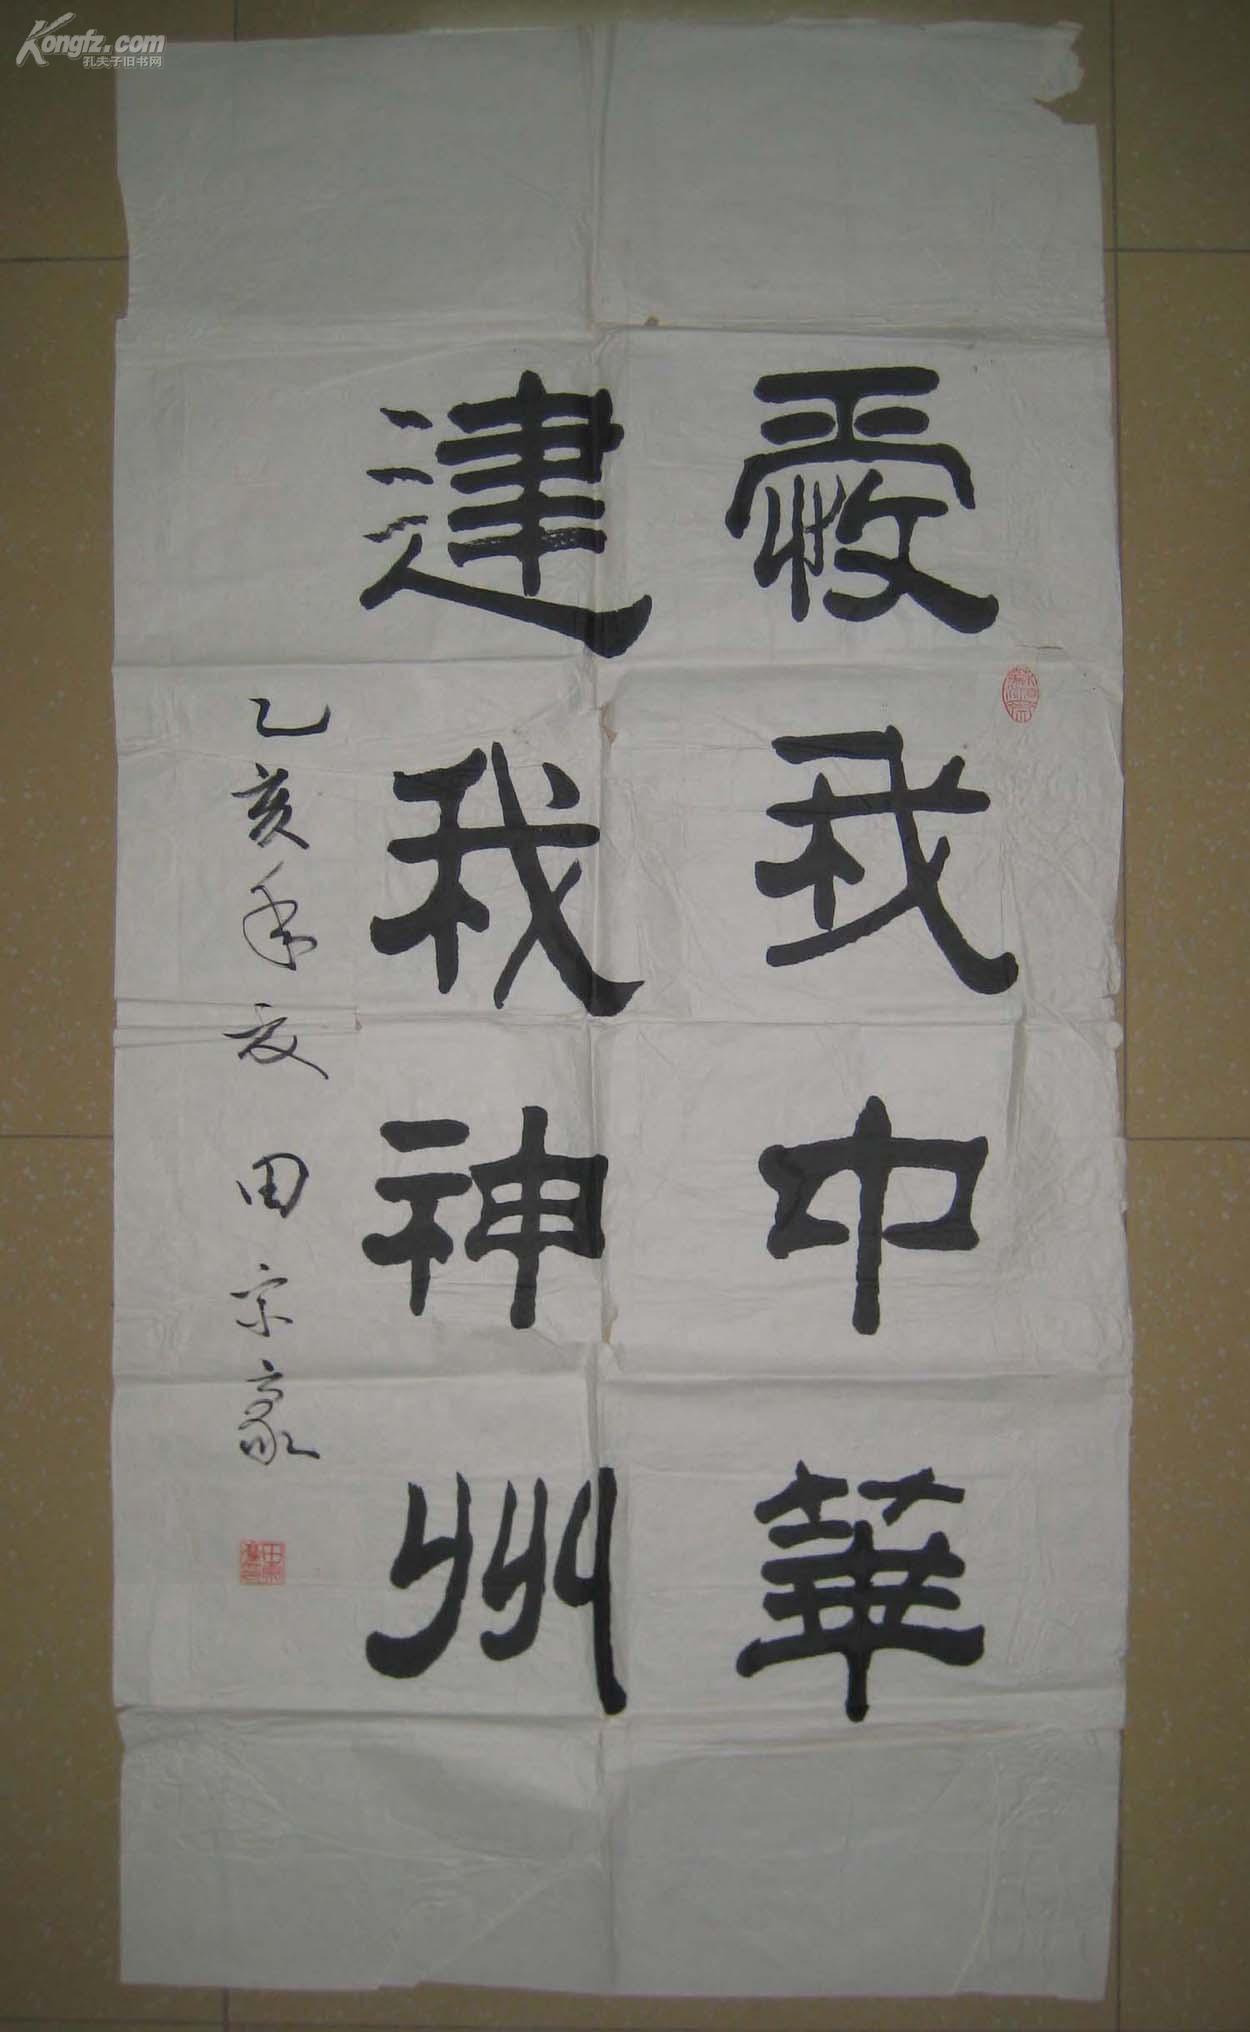 Kongfz.com
孔夫子旧书网
爱我中華
建我神州
乙亥年夏 田宗豪